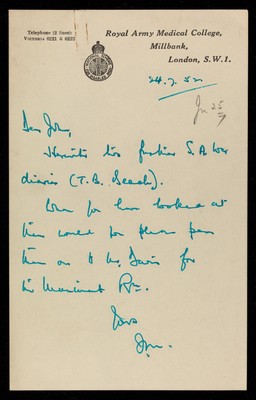 Telephone (2 lines):
VICTORIA 6221 & 6222
Royal Army Medical College,
Millbank,
London, S.W.1.
24.7.52
25/7
Dear John,
Herewith two further S.A. War
diaries (T.B. Beach).
When you have looked at
them would you please pass
them on to Mr. Davis for
the Muniment Rm.
Yours